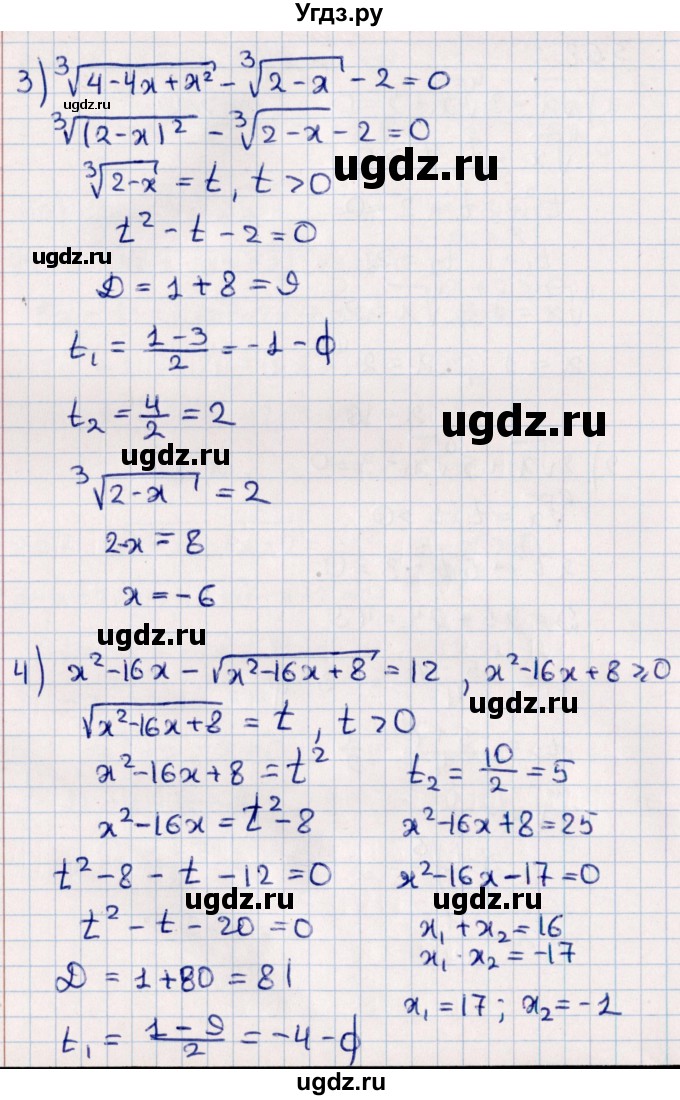 Угдз.ру
3) ∛(4-4x+x²) - ∛(2-x) - 2 = 0
∛((2-x)²) - ∛(2-x) - 2 = 0
ugdz.ru
∛(2-x) = t, t > 0
ugdz.ru
t² - t - 2 = 0
ugdz.ru
D = 1 + 8 = 9
t₁ = (1-3)/2 = -1 - ϕ
t₂ = 4/2 = 2
ugdz.ru
ugdz.ru
∛(2-x) = 2
2-x = 8
x = -6
ugdz.ru
4) x²-16x - √(x²-16x+8) = 12, x²-16x+8 ⩾ 0
ugdz.ru
√(x²-16x+8) = t, t > 0
x²-16x+8 = t²
x²-16x = t²-8
t²-8 - t - 12 = 0
ugdz.ru
t² - t - 20 = 0
D = 1+80 = 81
t₁ = (1-9)/2 = -4 - ϕ
t₂ = 10/2 = 5
x²-16x+8 = 25
x²-16x-17 = 0
ugdz.ru
x₁ + x₂ = 16
x₁ · x₂ = -17
x₁ = 17; x₂ = -1
ugdz.ru